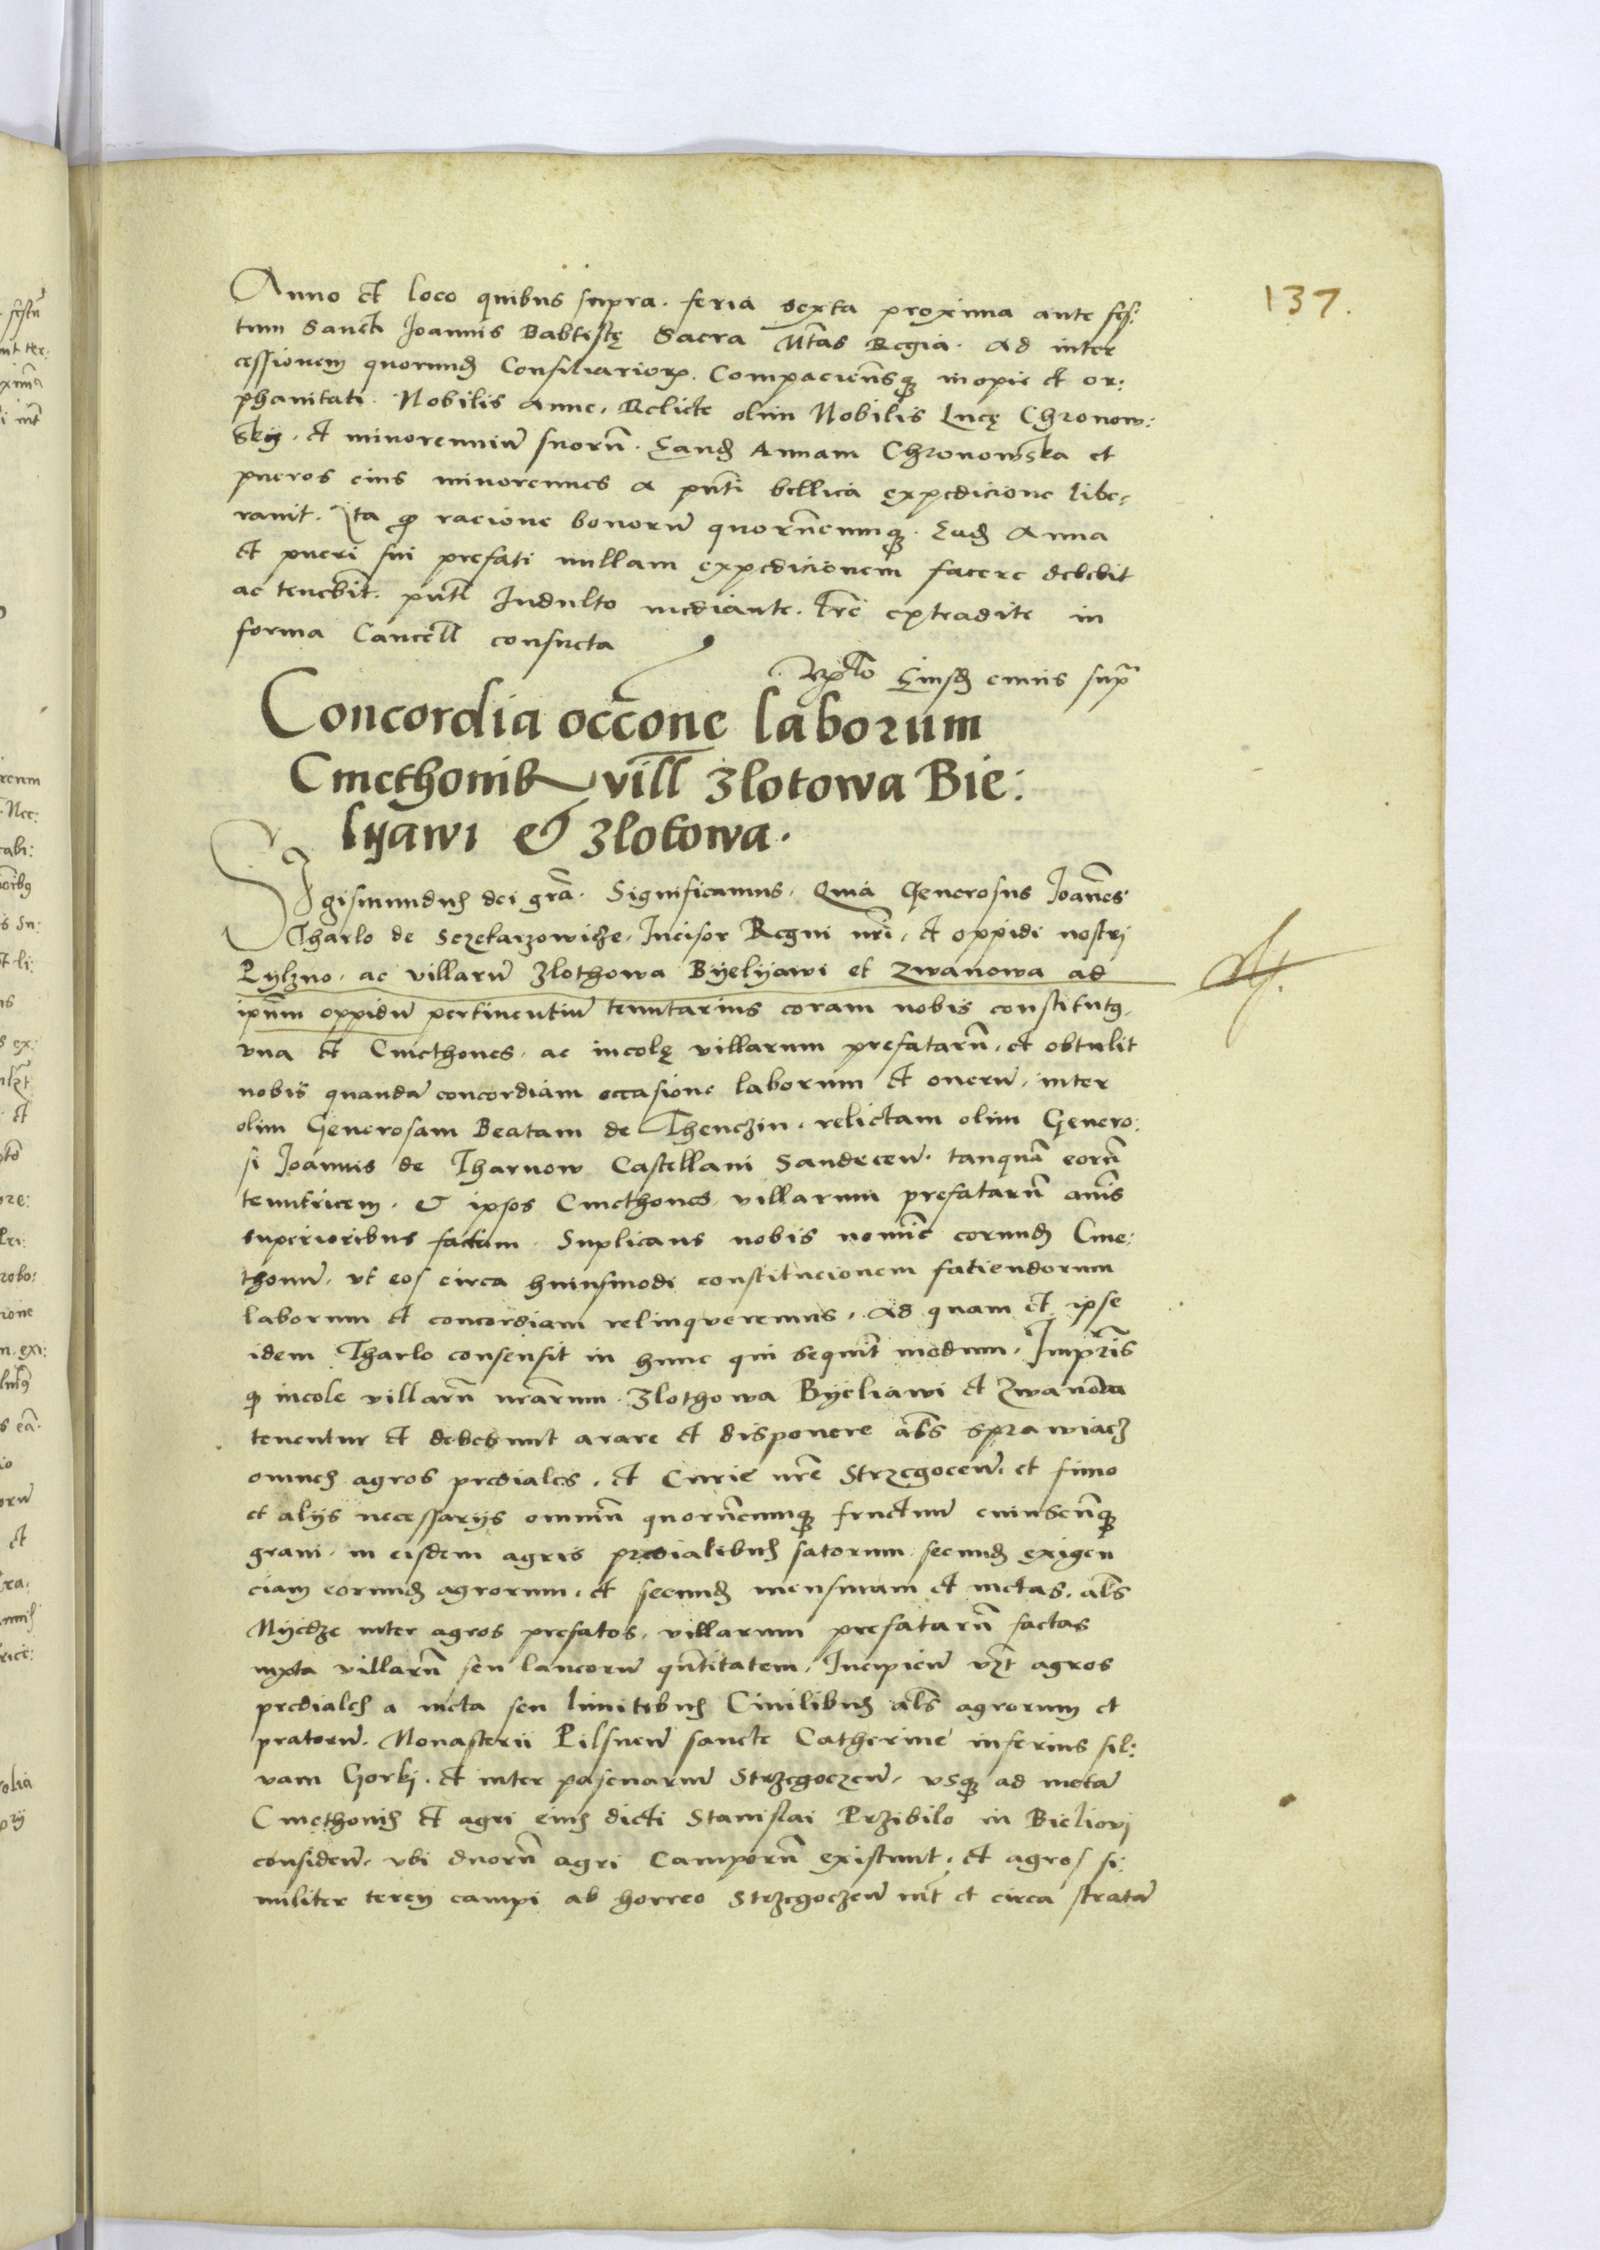 137.
Anno et loco quibus supra. feria sexta proxima ante fes:
tum Sancti Joannis Babtistę Sacra Mtas Regia. Ad inter
cessionem quorund Consiliariorꝝ. Compaciensqꝫ inopie et or:
phanitati. Nobilis Anne, Relicte olim Nobilis Lucę Chronow:
skij. et minorennium suorum. Eand Annam Chronowska et
pueros eius minorennes a pnti bellica expedicione libe,
rauit. Ita ꝙ racione bonorum quorumcunqꝫ. Ead Anna
et pueri sui prefati nullam expedicionem facere debebit
ac tenebit. pnti Indulto mediante. Lre extradite in
forma Cancell consueta
Rela Eiusd cuius supra
Concordia occone laborum
Cmethonib vill Zlotowa Bie:
lyawi & Zlotowa.
Sigismundus dei gra. Significamus. Quia Generosus Joannes
Tharlo de Sczekarzowicze, Incisor Regni nri, et oppidi nostri
Pylzno. ac villarum Zlothowa Byelyawi et Zwanowa ad
ipsum oppidum pertinentium tenutarius coram nobis constitutus,
vna et Cmethones. ac incolę villarum prefatarum, et obtulit
nobis quandam concordiam occasione laborum et onerum, inter
olim Generosam Beatam de Thenczin. relictam olim Genero:
si Joannis de Tharnow Castellani Sandecen. tanquam eorum
tenutricem. & ipsos Cmethones villarum prefatarum annis
superioribus factam. Suplicans nobis nomine eorund Cme:
thonum, vt eos circa huiusmodi constitucionem fatiendorum
laborum et concordiam relinqueremus, Ad quam et ipse
idem Tharlo consensit in hunc qui sequit modum. Impris
ꝙ incole villarum nrarum. Zlothowa Byeliawi et Zwanowa
tenentur et debebunt arare et disponere als sprawiacz
omnes agros prediales, et Curie nre Strzegocen, et fimo
et alijs necessarijs omnium quorumcunqꝫ fructuum cuiuscunqꝫ
grani in eisdem agris predialibus satorum secund exigen
ciam eorund agrorum, et secund mensuram et metas. als
Myedze inter agros prefatos, villarum prefatarum factas
iuxta villarum seu laneorum quntitatem, Incipien vzt agros
prediales a meta seu limitibus Ciuilibus als agrorum et
pratorum. Monasterii Pilsnen sancte Catherine inferius sil:
vam Gorkj. et inter pascuarum Strzegoczen, vsqꝫ ad metam
Cmethonis et agri eius dicti Stanislai Przibilo in Bieliovj
considen, vbi duorum agri Camporum existunt, et agros si
militer tercij campi ab horreo Strzegoczen nt et circa stratam